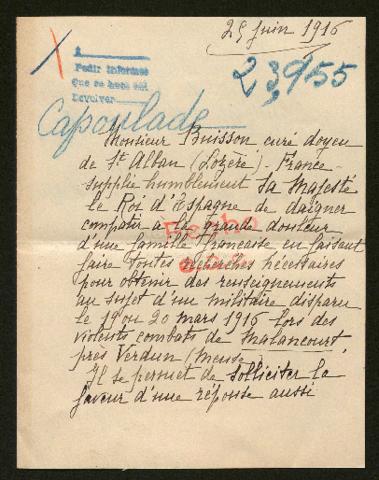 25 juin 1916
A
Pedir informes
Que se hace así
Devolver
23,955
Capoulade
Monsieur Buisson curé doyen
de St Alban (Lozère). France -
supplie humblement Sa Majesté
le Roi d'Espagne de daigner
compatir à la grande douleur
d'une famille Française en faisant
faire toutes recherches nécessaires
pour obtenir des renseignements
au sujet d'un militaire disparu
le 19 ou 20 mars 1916 lors des
violents combats de Malancourt,
près Verdun (Meuse
Il se permet de solliciter la
faveur d'une réponse aussi